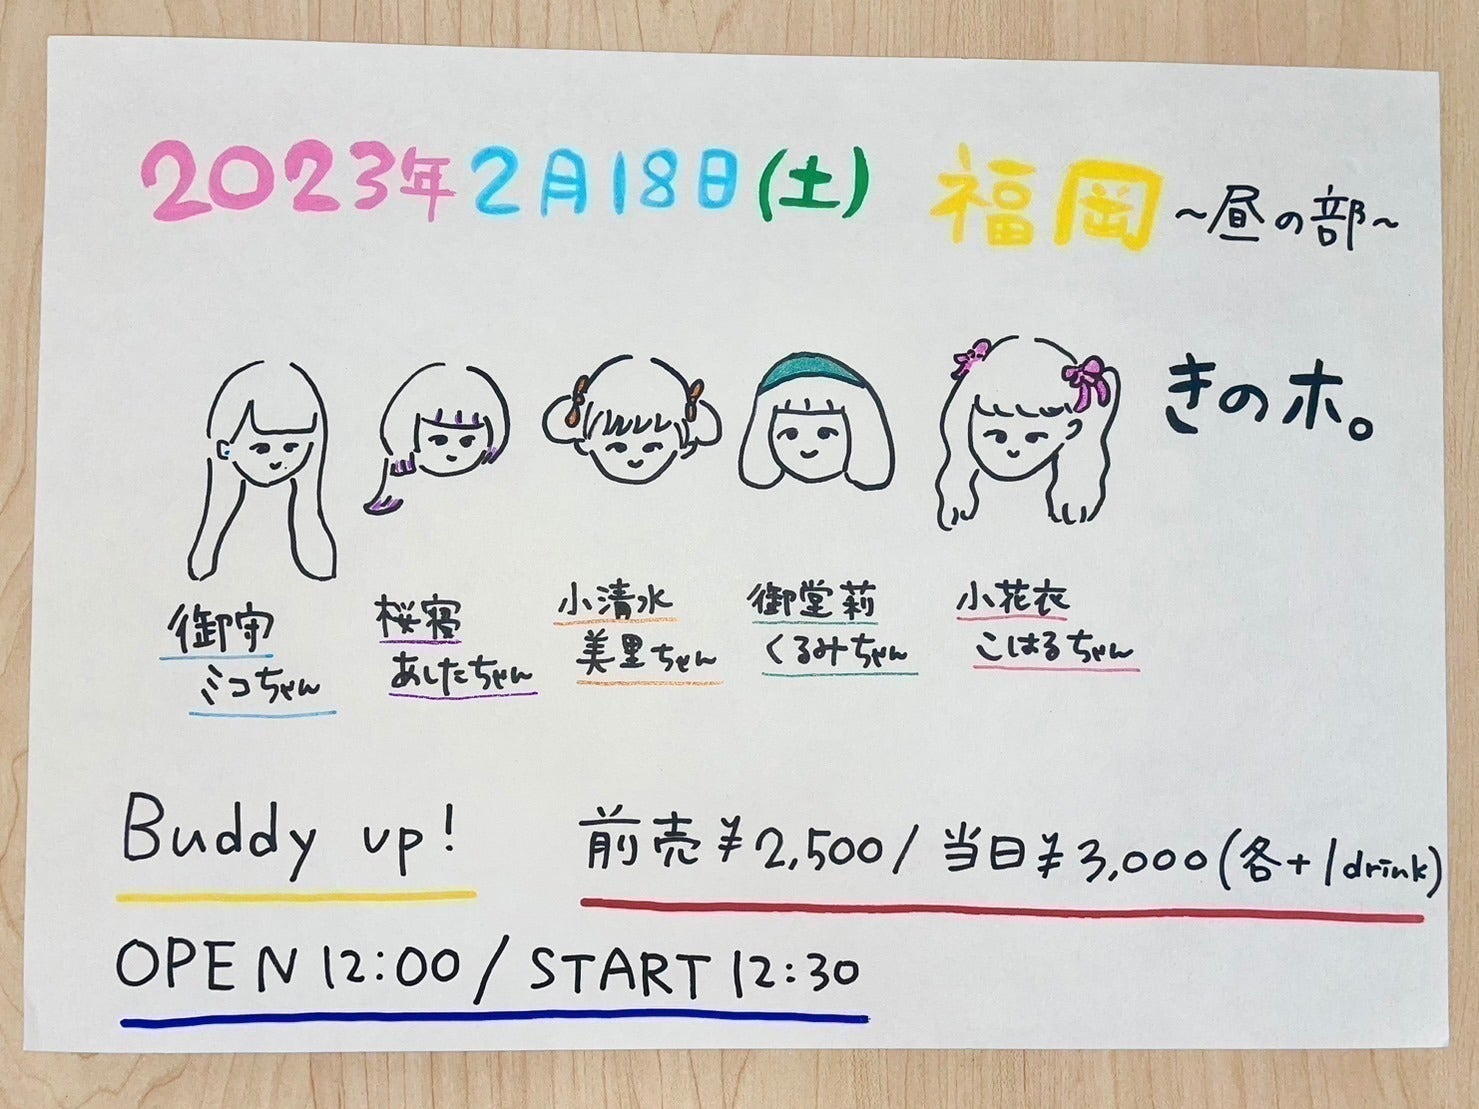 2023年2月18日(土) 福岡 ~昼の部~
きのホ。
御守
ミコちゃん
桜寝
あしたちゃん
小清水
美里ちゃん
御堂莉
くるみちゃん
小花衣
こはるちゃん
Buddy up!
前売¥2,500/当日¥3,000(各+1drink)
OPEN 12:00/START 12:30